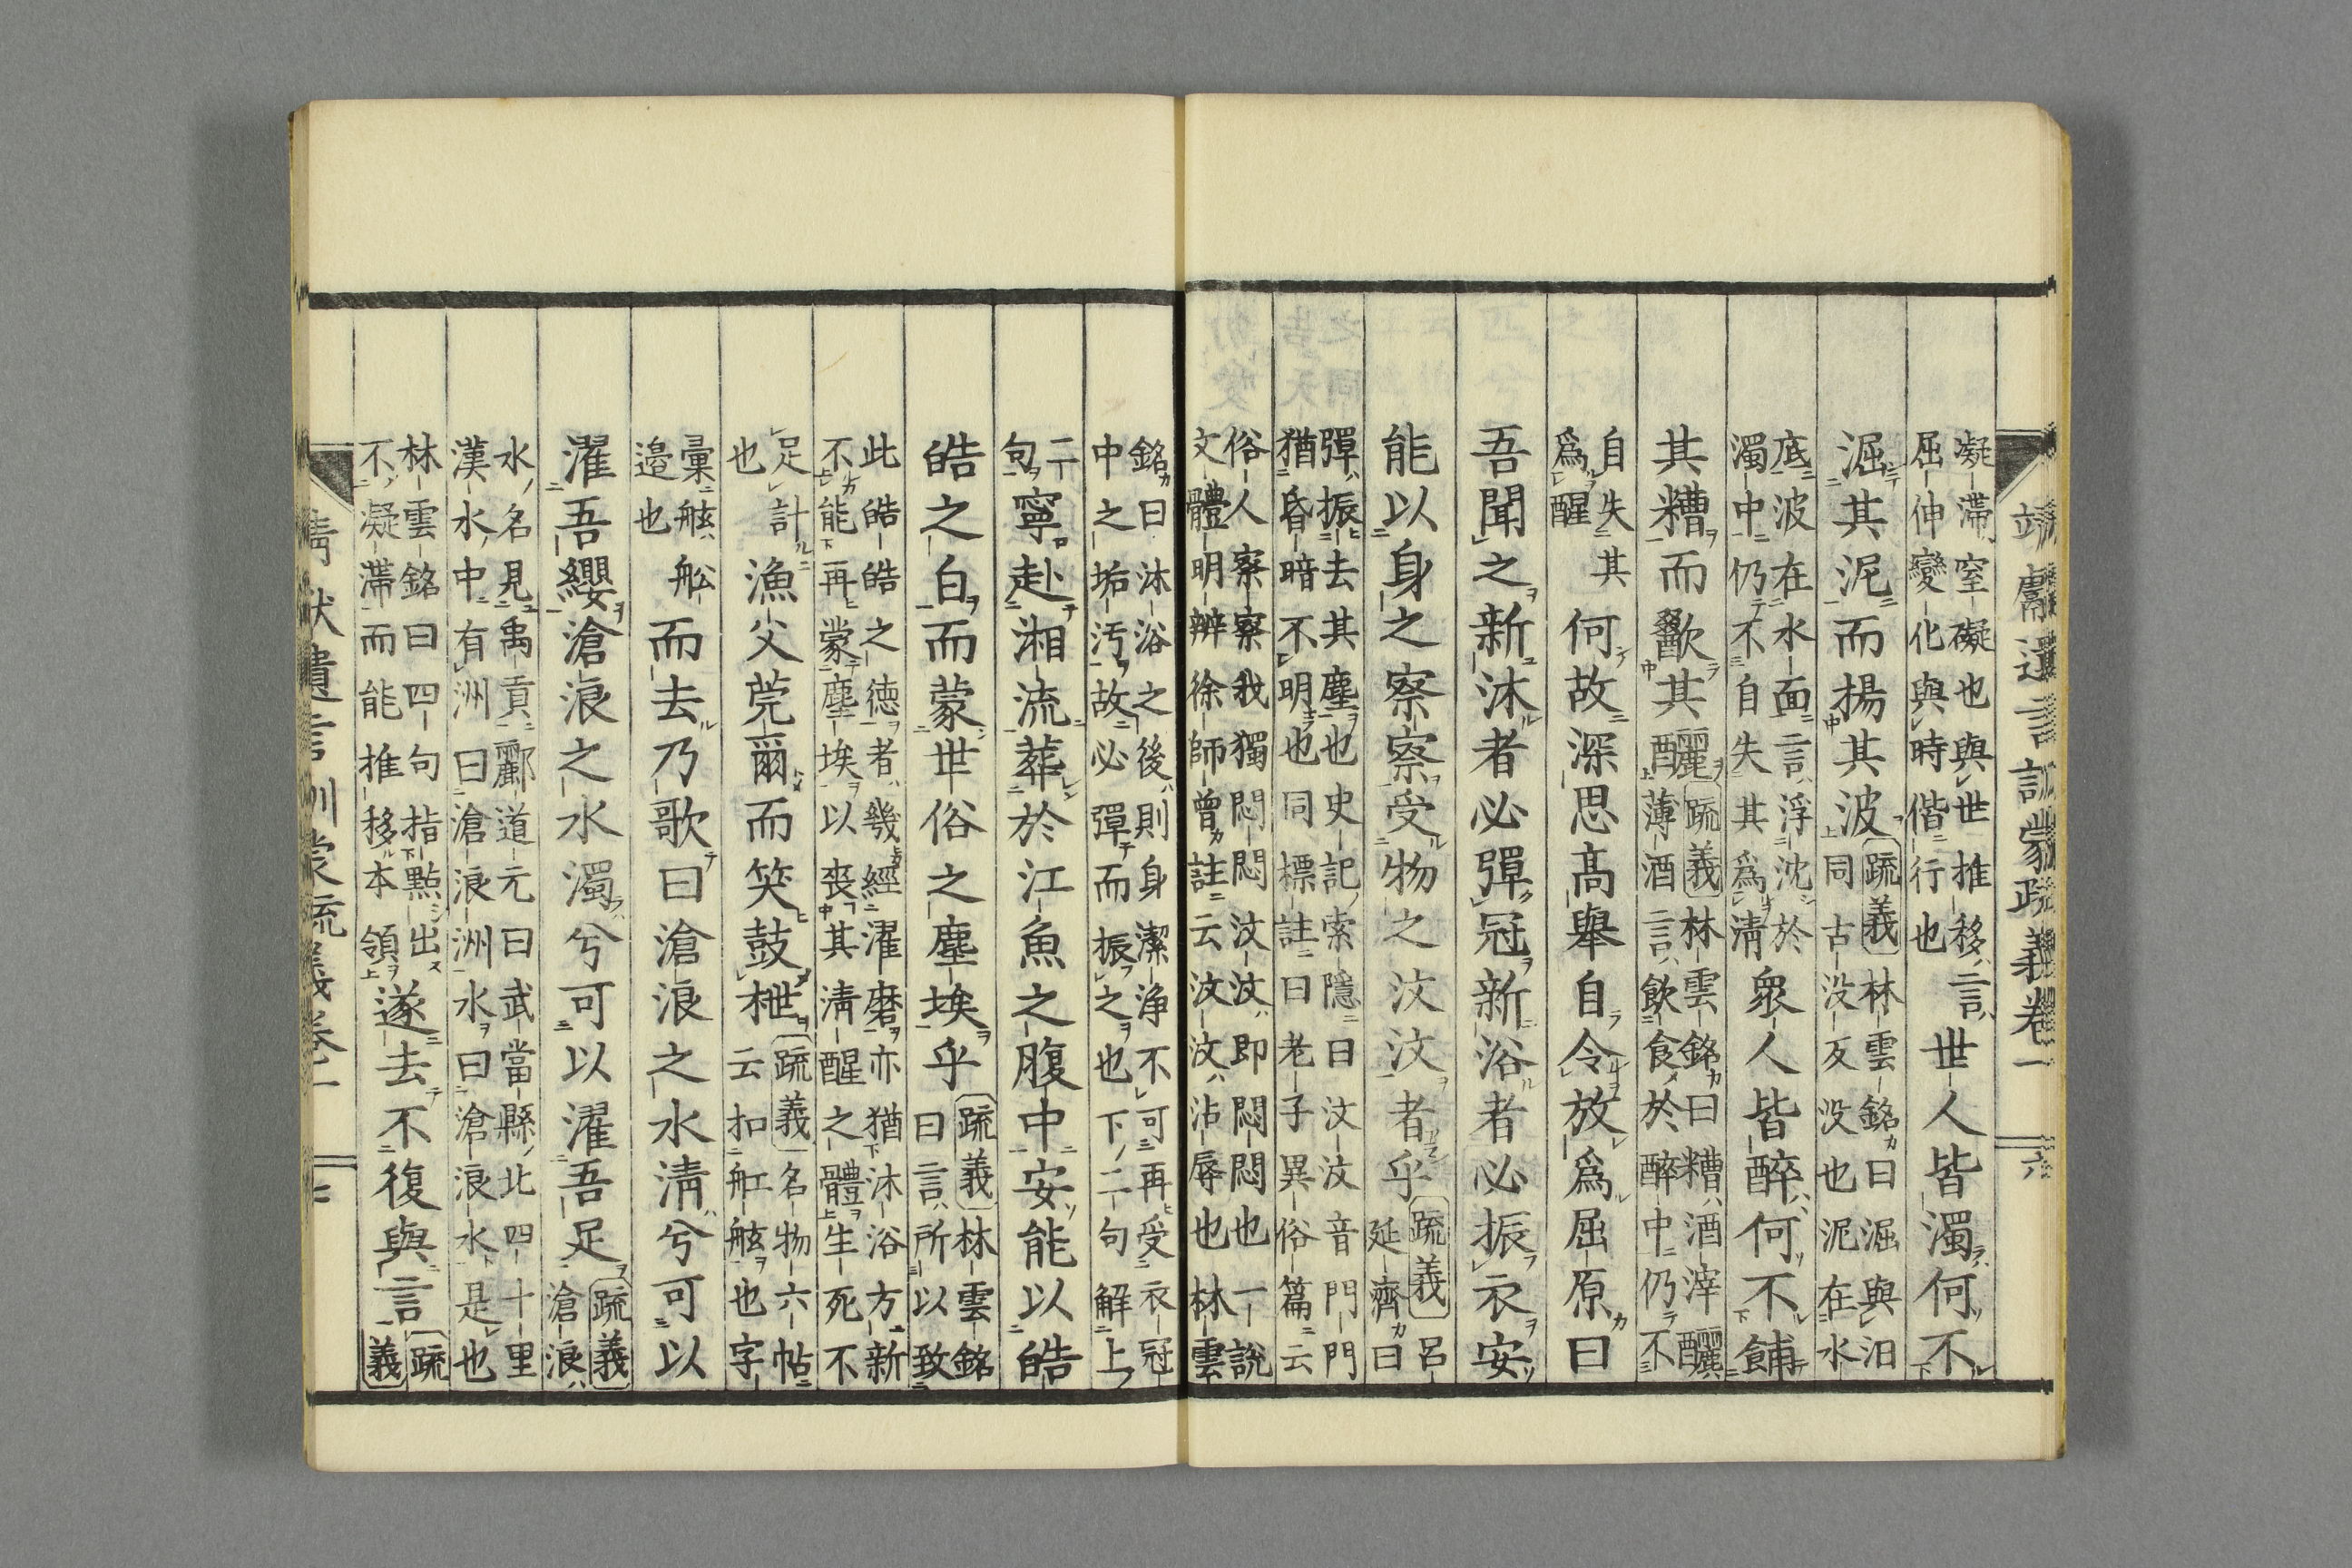 靖獻遺言訓蒙疏義卷一 六
凝滯窒礙也與世推移言
屈伸變化與時偕行也
世人皆濁何不
淈其泥而揚其波
〔疏義〕林雲銘曰淈與汨
同古没反没也泥在水
底波在水面言浮沈於
濁中仍不自失其爲清
衆人皆醉何不餔
其糟而歠其釃
〔疏義〕林雲銘曰糟酒滓釃
薄酒言飲食於醉中仍不
自失其
爲醒
何故深思高舉自令放爲屈原曰
吾聞之新沐者必彈冠新浴者必振衣安
能以身之察察受物之汶汶者乎
〔疏義〕呂
延濟曰
彈振去其塵也史記索隱曰汶汶音門門
猶昏暗不明也同標註曰老子異俗篇云
俗人察察我獨悶悶汶汶即悶悶也一說
文體明辨徐師曾註云汶汶沾辱也林雲
銘曰沐浴之後則身潔浄不可再受衣冠
中之垢汚故必彈而振之也下二句解上
二
句
寧赴湘流葬於江魚之腹中安能以皓
皓之白而蒙世俗之塵埃乎
〔疏義〕林雲銘
曰言所以致
此皓皓之德者幾經濯磨亦猶沐浴方新
不能再蒙塵埃以喪其清醒之體生死不
足計
也
漁父莞爾而笑鼓枻
〔疏義〕名物六帖
云扣舡舷也字
彙舷舩
邉也
而去乃歌曰滄浪之水清兮可以
濯吾纓滄浪之水濁兮可以濯吾足
〔疏義〕
滄浪
水名見禹貢酈道元曰武當縣北四十里
漢水中有洲曰滄浪洲水曰滄浪水是也
林雲銘曰四句指點出
不凝滯而能推移本領
遂去不復與言
〔疏
義〕
靖獻遺言訓蒙疏義卷一 七